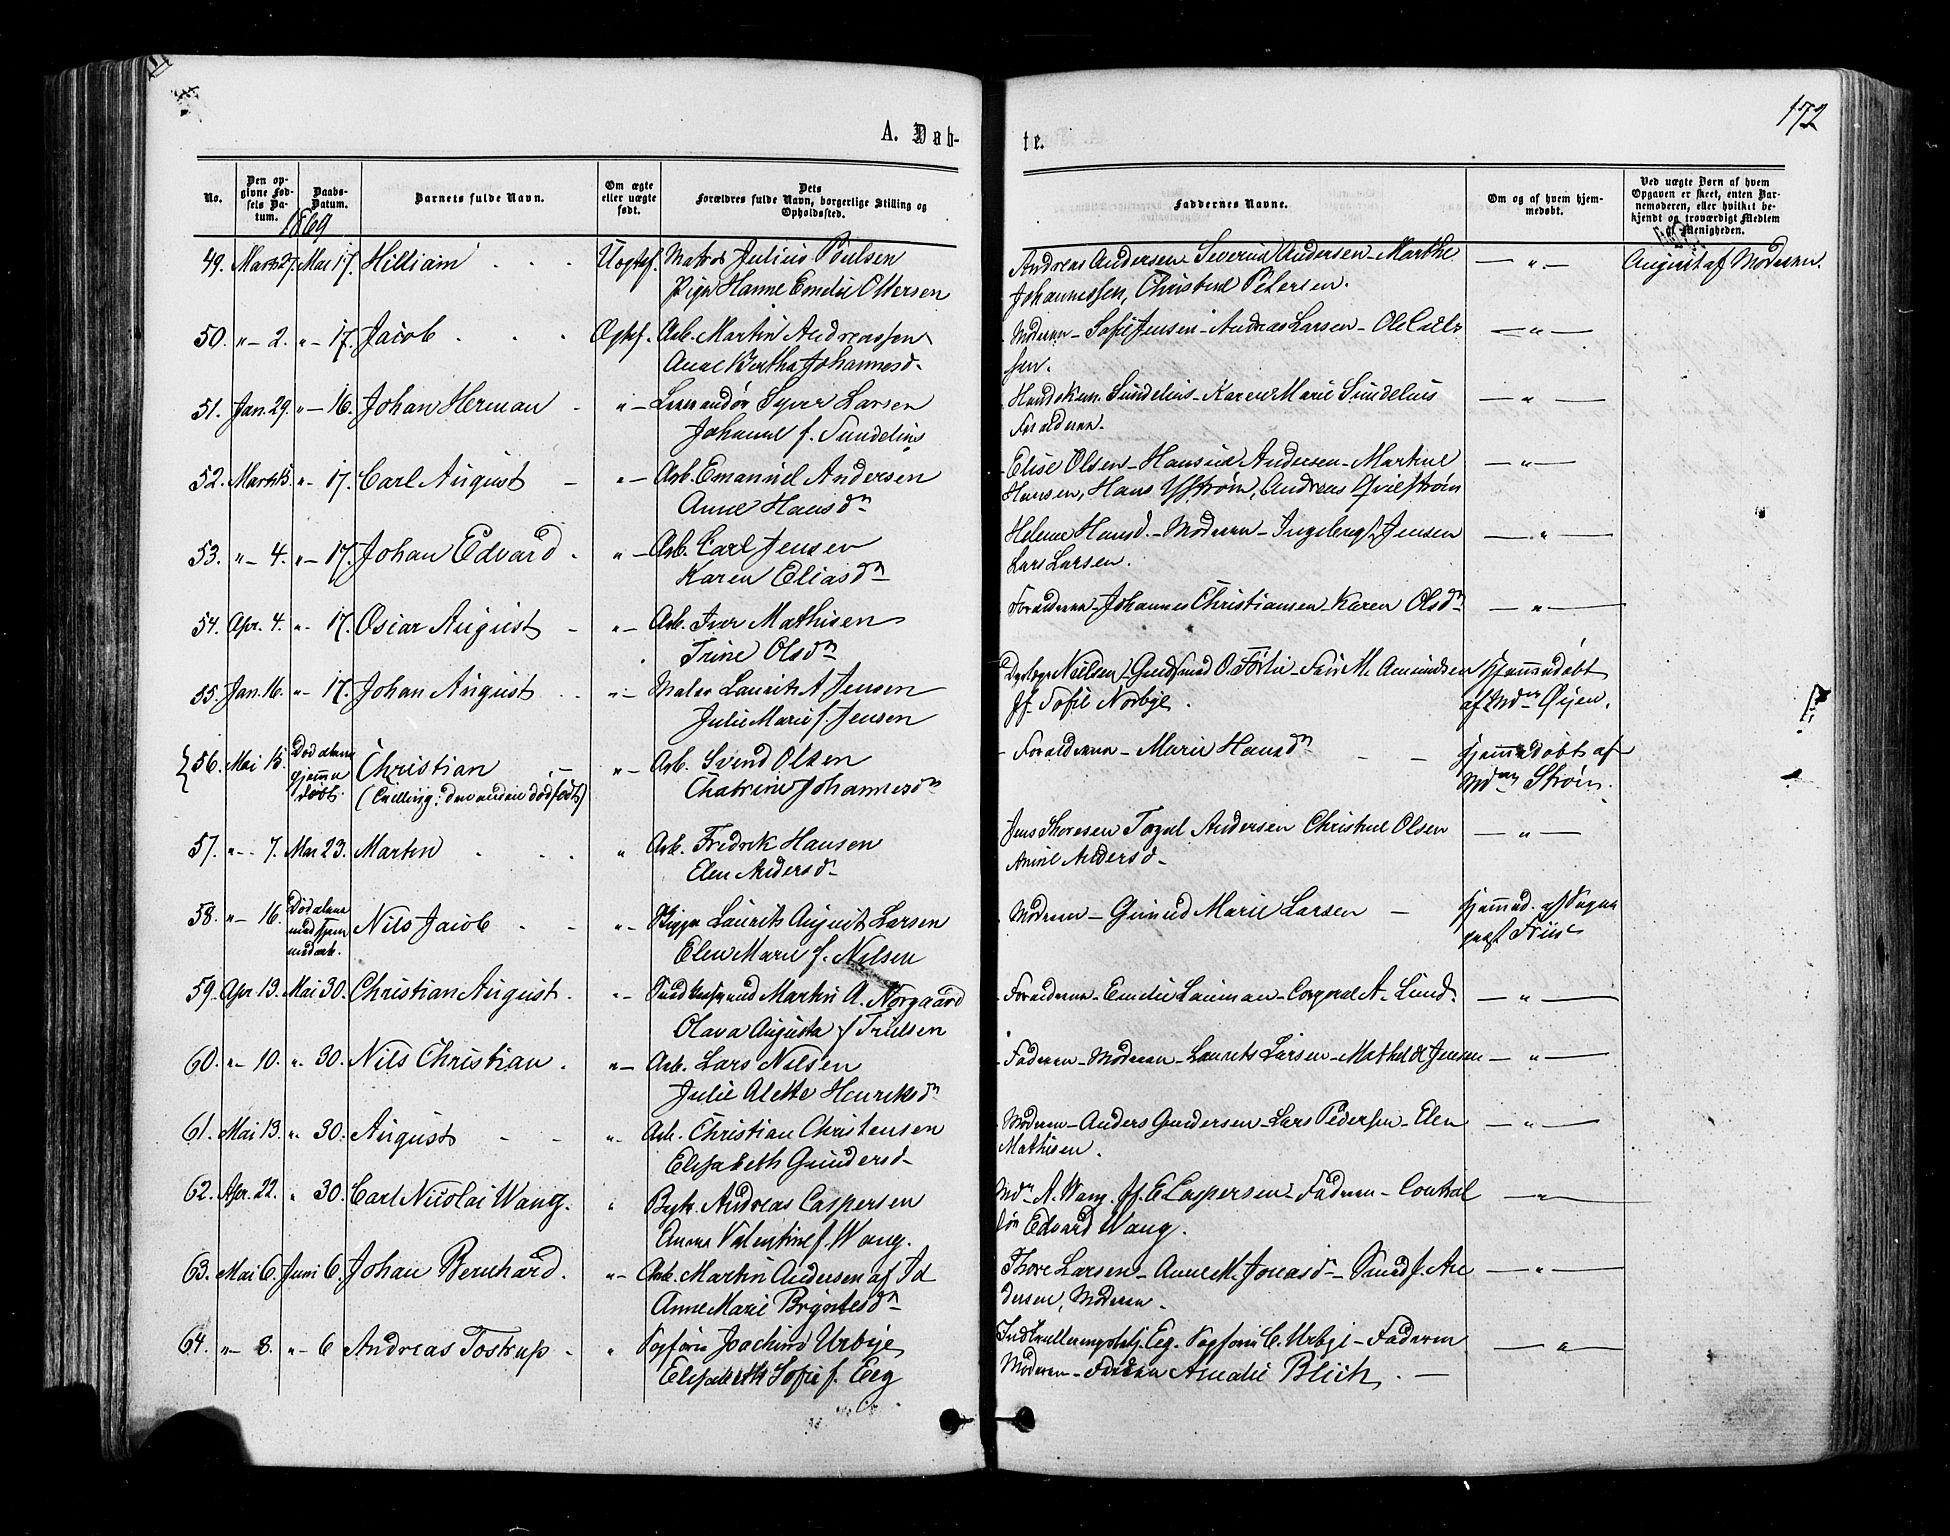 172
A. Døb-
te.
No.
Den opgivne Fødsels Datum.
Daabs-Datum.
Barnets fulde Navn.
Om ægte eller uægte født.
Dets Forældres fulde Navn, borgerlige Stilling og Opholdssted.
Faddernes Navne.
Om og af hvem hjemmedøbt.
Ved uægte Børn af hvem Opgaven er skeet, enten Barnemoderen, eller hvilket bekjendt og troværdigt Medlem af Menigheden.
1869
49. Marts 27. Mai 17. Hilliam Uægtef. Matros Julius Poulsen Andreas Andersen Severine Andersen - Marthe — " — af Moderen.
Pige Hanne Emelie Ottersen Johannessen, Christine Petersen.
50. " — 2. " — 17. Jacob Ægtef. Arb. Martin Andreassen Moderen - Sofie Jensen - Andreas Larsen - Ole — " —
Anne Bertha Johannesd. sen.
51. Jan. 29. " — 16. Johan Herman " — Syver Larsen Sundelius - Karen Marie Sundelius — " —
Johanne f. Sundelius Forældrene.
52. Marts 15. " — 17. Carl August " — Arb. Emanuel Andersen Elise Olsen - Andersen - Martine — " —
Anne Hansdn Hansen, Hans Andreas Qvilstrøm
53. " — 4. " — 17. Johan Edvard " — Arb. Carl Jensen Helene Hansd. - Moderen - Ingeborg Jensen — " —
Karen Eliasdn Lars Larsen.
54. Apr. 4. " — 17. Oscar August " — Arb. Iver Mathisen Forældrene - Johannes Christiansen - Karen Olsdn — " —
Trine Olsdn
55. Jan. 16. " — 17. Johan August " — Maler Laurits A Jensen Nielsen - O. M. Amundsen Hjemmedøbt
Julie Marie f. Jensen Jf. Sofie Norbye. af Mdm Øyen.
56. Mai 15. Død alene hjemmedøbt. Christian " — Arb. Svend Olsen Forældrene - Marie Hansdn Hjemmedøbt af
(Tvilling: den anden dødfødt) Chatrine Johannesdn Mdm Strøm.
57. " — 7. Mai 23. Martin " Arb. Fredrik Hansen Jens Thoresen Andersen Christine Olsen — " —
Elen Andersd. Andersd.
58. " — 16. Død alene med hjemmedaab. Nils Jacob " — Laurits August Larsen Moderen - Marie Larsen — Hjemmed. af Sogne
Elen Marie f. Nilsen præst Friis
59. Apr 13. Mai 30. Christian August. " — Martin A. Norgaard Forældrene - Emelie Lauman - Corporal A. Lund. — " —
Olava Augusta f Trulsen
60. " — 10. " 30. Nils Christian. " — Arb. Lars Nilsen Faderen - Moderen - Laurits Larsen - Mathilde Jensen — " —
Julie Alette Henriksdn
61. Mai 13. " 30. August " — Arb. Christian Christensen Moderen - Anders Gundersen - Lars Pedersen - Elen — " —
Elisabeth Gundersd. Mathisen.
62. Apr. 22. " 30. Carl Nicolai Wang. " Andreas Caspersen Mdm A. Wang. Jf. E Caspersen - Faderen - — " —
Emma Valentine f. Wang. Edvard Wang.
63. Mai 6. Juni 6. Johan Bernhard. " — Arb. Martin Andersen af Id Thore Larsen - Anne M. Jonasd. - An — " —
Anne Marie Bryntesdn dersen, Moderen.
64. " — 8. " — 6 Andreas Tostrup " Sagfører Joachim Urbye Eeg. Sagfører C. Urbye - Faderen — " —
Elisabeth Sofie f. Eeg Moderen - Amalie Blich. —